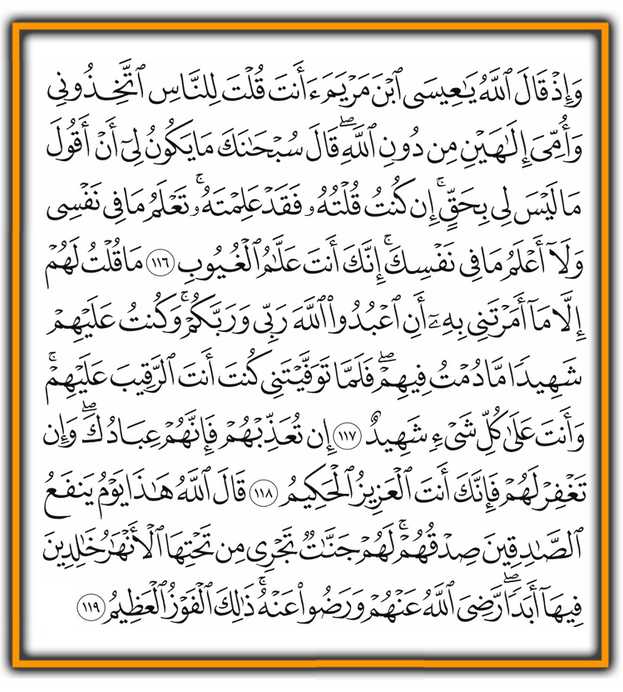 وَإِذْ قَالَ ٱللَّهُ يَٰعِيسَى ٱبْنَ مَرْيَمَ ءَأَنتَ قُلْتَ لِلنَّاسِ ٱتَّخِذُونِى
وَأُمِّىَ إِلَٰهَيْنِ مِن دُونِ ٱللَّهِۖ قَالَ سُبْحَٰنَكَ مَا يَكُونُ لِىٓ أَنْ أَقُولَ
مَا لَيْسَ لِى بِحَقٍّۚ إِن كُنتُ قُلْتُهُۥ فَقَدْ عَلِمْتَهُۥۚ تَعْلَمُ مَا فِى نَفْسِى
وَلَآ أَعْلَمُ مَا فِى نَفْسِكَۚ إِنَّكَ أَنتَ عَلَّٰمُ ٱلْغُيُوبِ ١١٦ مَا قُلْتُ لَهُمْ
إِلَّا مَآ أَمَرْتَنِى بِهِۦٓ أَنِ ٱعْبُدُوا۟ ٱللَّهَ رَبِّى وَرَبَّكُمْۚ وَكُنتُ عَلَيْهِمْ
شَهِيدًا مَّا دُمْتُ فِيهِمْۖ فَلَمَّا تَوَفَّيْتَنِى كُنتَ أَنتَ ٱلرَّقِيبَ عَلَيْهِمْۚ
وَأَنتَ عَلَىٰ كُلِّ شَىْءٍ شَهِيدٌ ١١٧ إِن تُعَذِّبْهُمْ فَإِنَّهُمْ عِبَادُكَۖ وَإِن
تَغْفِرْ لَهُمْ فَإِنَّكَ أَنتَ ٱلْعَزِيزُ ٱلْحَكِيمُ ١١٨ قَالَ ٱللَّهُ هَٰذَا يَوْمُ يَنفَعُ
ٱلصَّٰدِقِينَ صِدْقُهُمْۚ لَهُمْ جَنَّٰتٌ تَجْرِى مِن تَحْتِهَا ٱلْأَنْهَٰرُ خَٰلِدِينَ
فِيهَآ أَبَدًاۖ رَّضِىَ ٱللَّهُ عَنْهُمْ وَرَضُوا۟ عَنْهُۚ ذَٰلِكَ ٱلْفَوْزُ ٱلْعَظِيمُ ١١٩